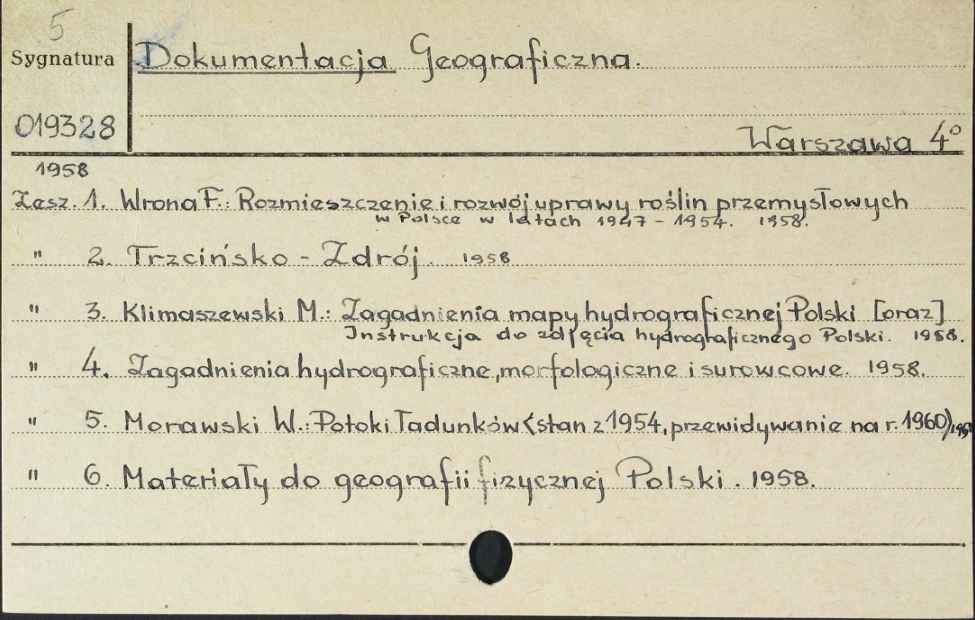 5
Sygnatura
Dokumentacja Geograficzna.
019328
Warszawa 4°
1958
Zesz. 1. Wrona F.: Rozmieszczenie i rozwój uprawy roślin przemysłowych
w Polsce w latach 1947 - 1954. 1958.
" 2. Trzcińsko - Zdrój. 1958
" 3. Klimaszewski M.: Zagadnienia mapy hydrograficznej Polski [oraz]
Instrukcja do zdjęcia hydrograficznego Polski. 1958.
" 4. Zagadnienia hydrograficzne, morfologiczne i surowcowe. 1958.
" 5. Morawski W.: Potoki ładunków (stan z 1954, przewidywanie na r. 1960), 1958
" 6. Materiały do geografii fizycznej Polski. 1958.